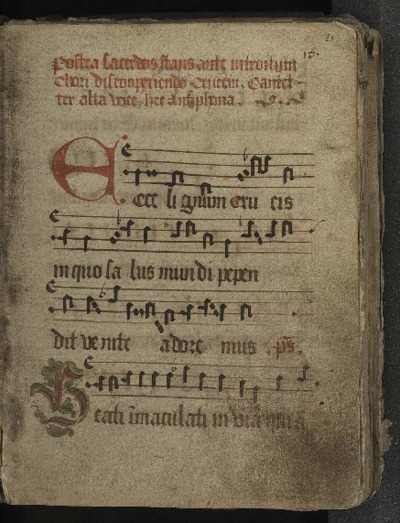 15.
Postea sacerdos stans ante introitum
chori discooperiendo crucem. Cantet
ter alta voce hec Antiphona.
Ecce lignum cru cis
in quo sa lus mun di pepen
dit venite adore mus. ps.
Beati imaculati in via qui a